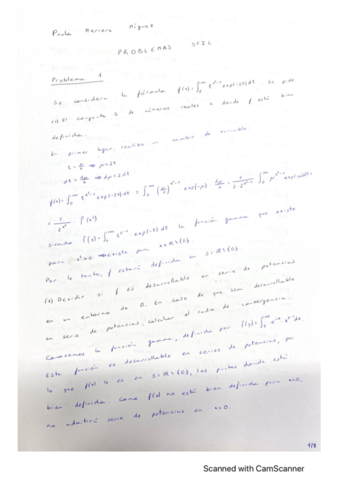 Paula Herrera Míguez
PROBLEMAS SFIL
Problema 1
Se considera la fórmula f(x)=∫₀^∞ t^{x²-1} exp(-2t)dt. Se pide
(1) El conjunto S de números reales x donde f está bien
definida.
En primer lugar, realizo un cambio de variable
t = μ/2 ⇒ μ=2t
dt = dμ/2 ⇒ dμ=2dt
f(x)=∫₀^∞ t^{x²-1} exp(-2t)dt = ∫₀^∞ (μ/2)^{x²-1} exp(-μ) dμ/2 = ∫₀^∞ μ^{x²-1} exp(-μ)dμ=
Γ(x²)
siendo la función gamma que existe
para x²>0 ⇒ existe para x∈ℝ\{0}
Por lo tanto, f estará definida en S=ℝ\{0}.
(2) Decidir si f es desarrollable en serie de potencias
en un entorno de 0. En caso de que sea desarrollable
en serie de potencias, calcular el radio de convergencia.
Conocemos la función gamma, definida por
Esta función es desarrollable en series de potencias, por
lo que f(x) lo es en S=ℝ\{0}, los puntos donde está
bien definida. Como f(x) no está bien definida para x=0,
no admitirá serie de potencias en x=0.
1/8
Scanned with CamScanner